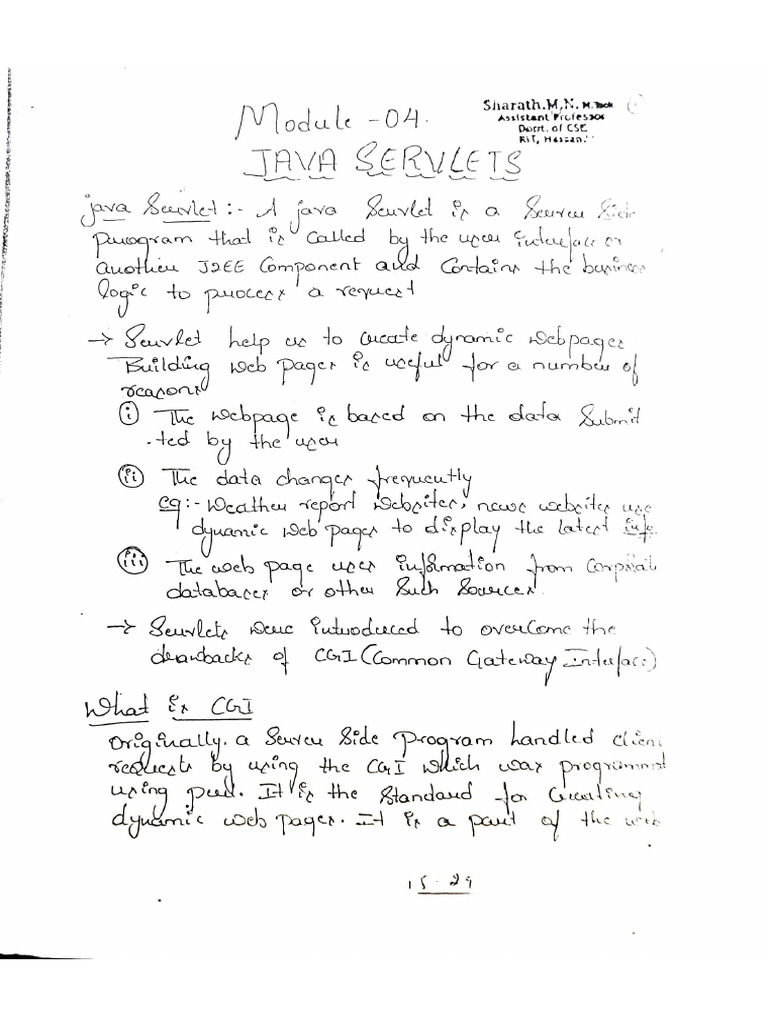 Module -04.
Sharath.M.N. M.Tech
Assistant Professor
Deptt. of CSE
RIT, Hassan.
JAVA SERVLETS
java Servlet :- A java Servlet is a Server Side
program that is called by the user interface or
another J2EE Component and Contains the business
logic to process a request
→ Servlet help us to create dynamic webpages
Building web pages is useful for a number of
reasons
(i) The webpage is based on the data Submit
-ted by the user
(ii) The data changes frequently
eg:- Weather report websites, news websites use
dynamic web pages to display the latest info.
(iii) The web page uses information from Corporate
databases or other Such Sources.
→ Servlets were introduced to overcome the
drawbacks of CGI (Common Gateway Interface)
What is CGI
Originally. a Server Side Program handled client
requests by using the CGI which was programmed
using perl. It is the Standard for Creating
dynamic web pages. It is a part of the web
15-29